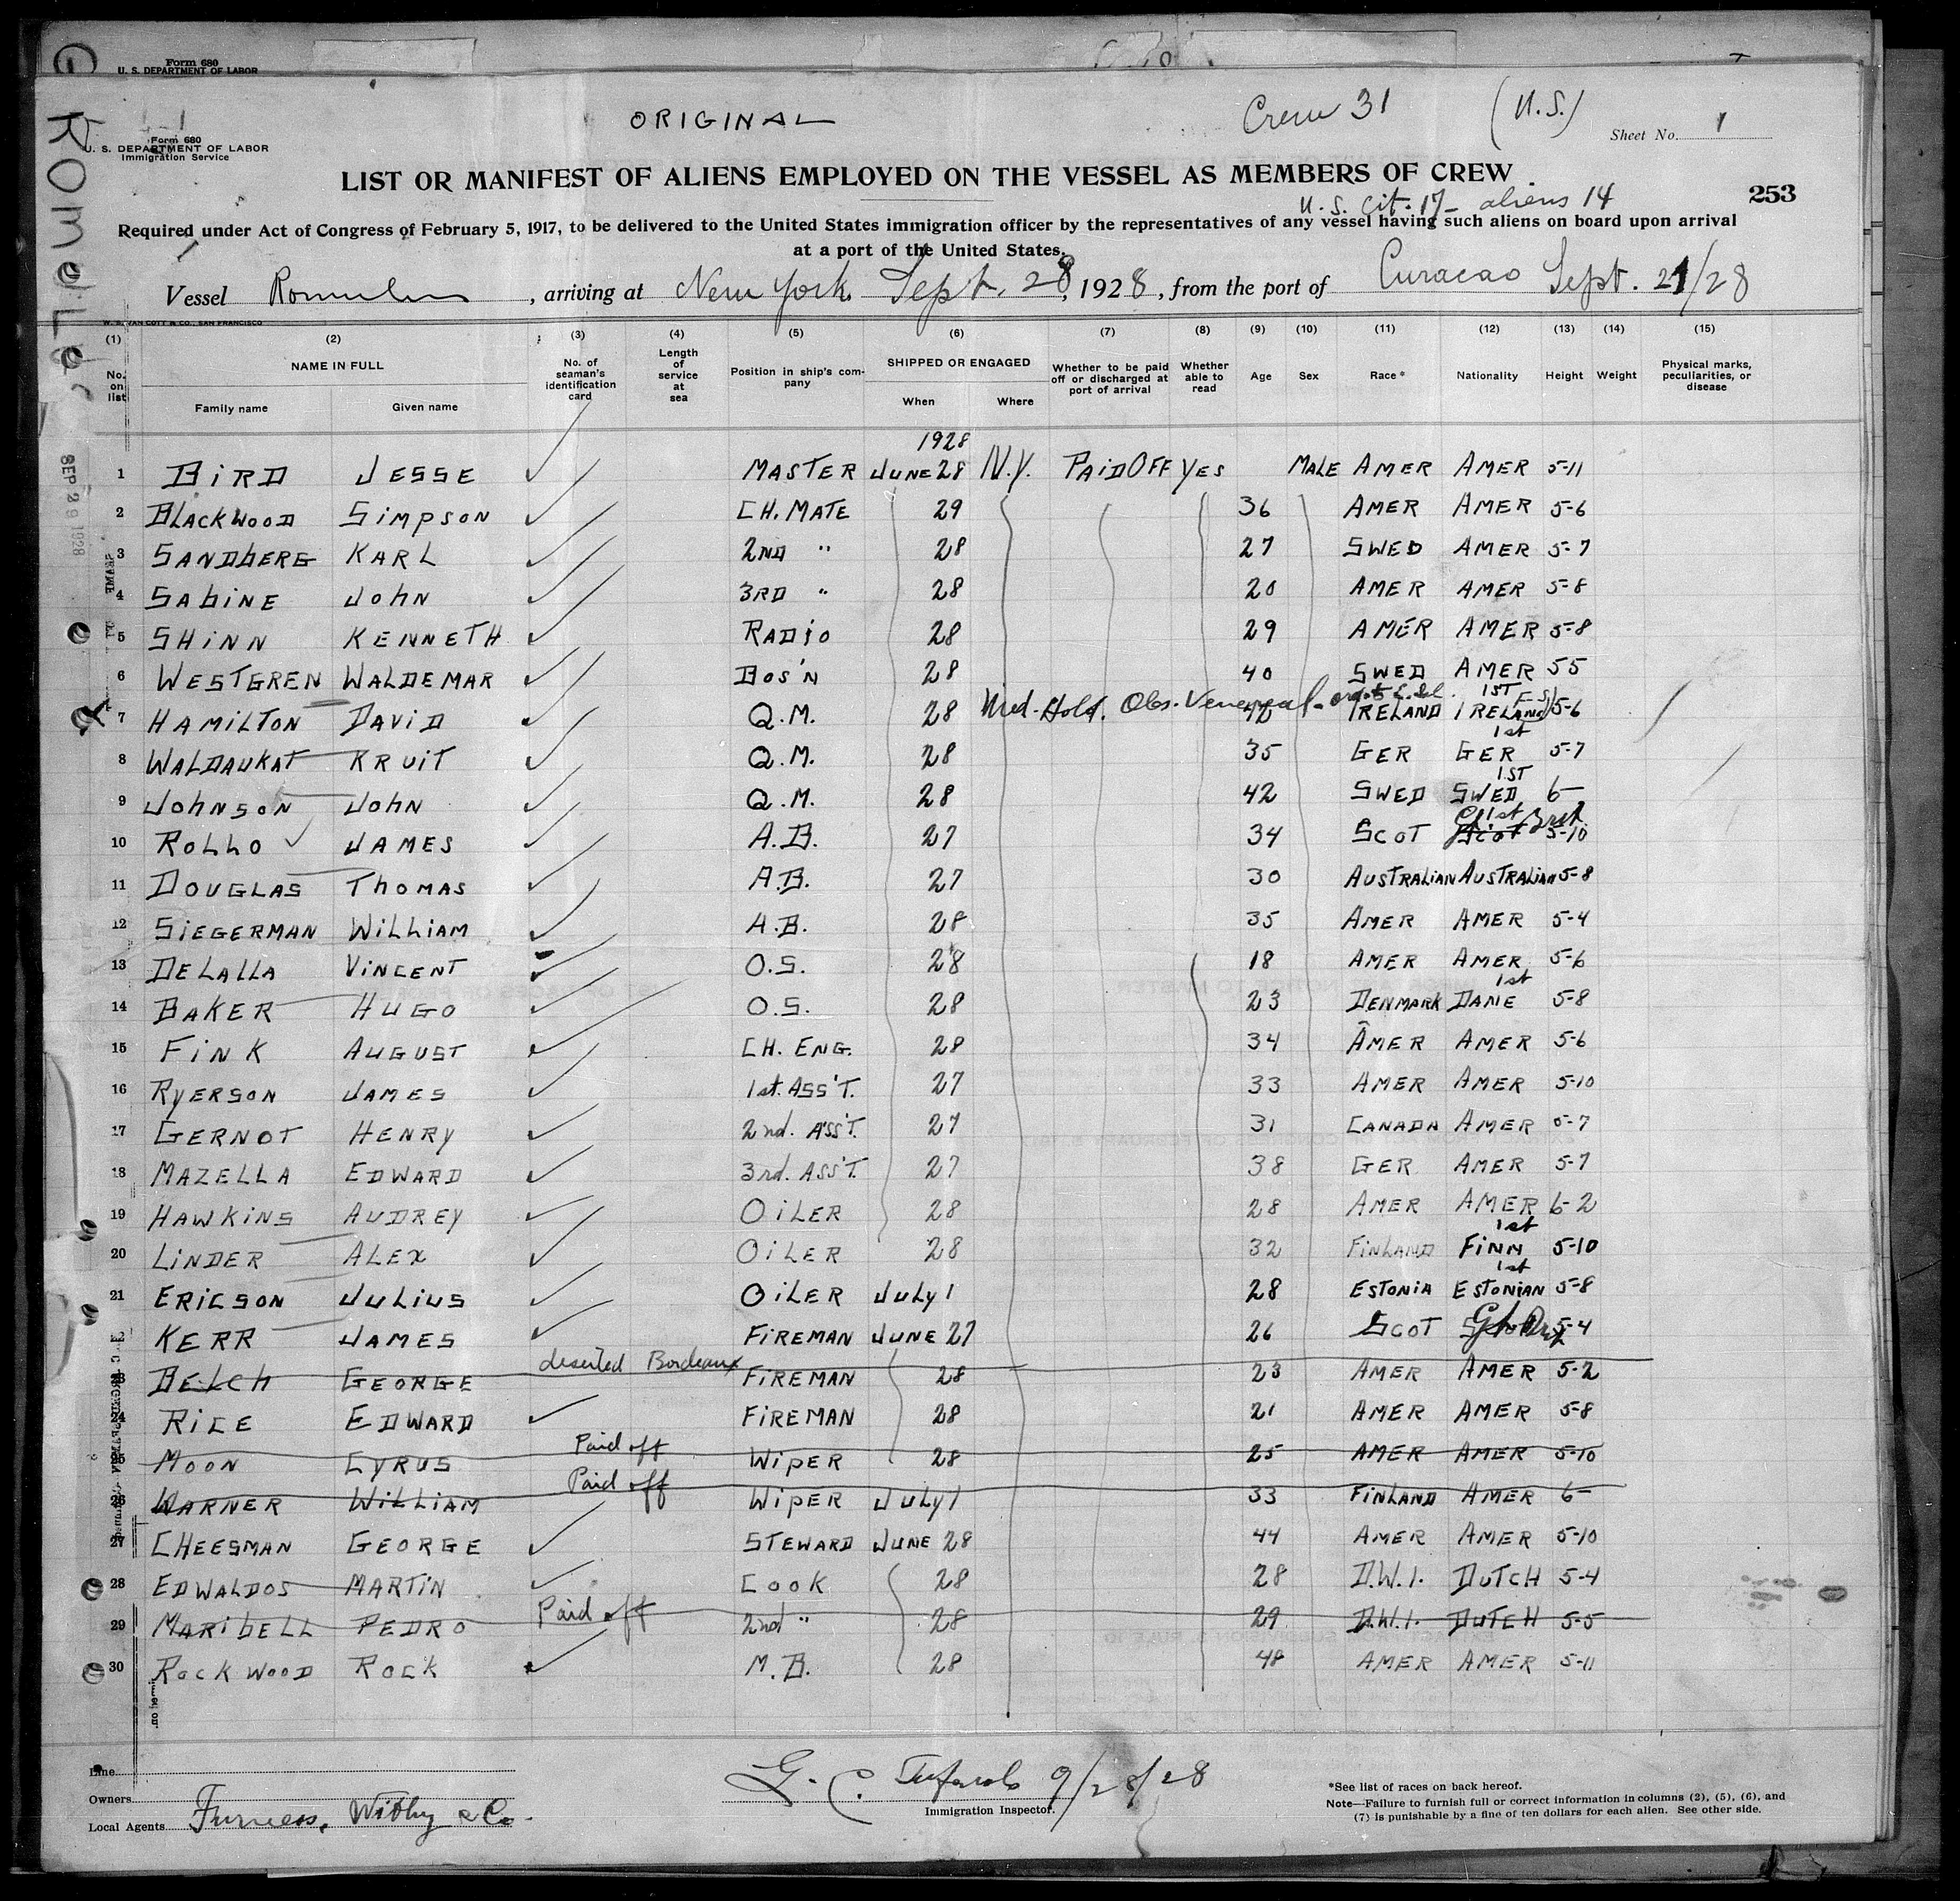 Form 680
U. S. DEPARTMENT OF LABOR
ROMULUS
ORIGINAL
Crew 31
(U.S.)
Form 680
U. S. DEPARTMENT OF LABOR
Immigration Service
Sheet No. 1
LIST OR MANIFEST OF ALIENS EMPLOYED ON THE VESSEL AS MEMBERS OF CREW
253
U.S. Cit. 17 - aliens 14
Required under Act of Congress of February 5, 1917, to be delivered to the United States immigration officer by the representatives of any vessel having such aliens on board upon arrival
at a port of the United States.
Vessel Romulus, arriving at New York Sept. 28, 1928, from the port of Curacao Sept. 21/28
W. S. VAN COTT & CO., SAN FRANCISCO
(1) (2) (3) (4) (5) (6) (7) (8) (9) (10) (11) (12) (13) (14) (15)
No. on list
NAME IN FULL
Family name Given name
No. of seaman's identification card
Length of service at sea
Position in ship's company
SHIPPED OR ENGAGED
When Where
Whether to be paid off or discharged at port of arrival
Whether able to read
Age Sex Race* Nationality Height Weight
Physical marks, peculiarities, or disease
SEP 29 1928
1928
1 BIRD JESSE MASTER JUNE 28 N.Y. PAID OFF YES MALE AMER AMER 5-11
2 BLACKWOOD SIMPSON CH. MATE 29 36 AMER AMER 5-6
3 SANDBERG KARL 2ND " 28 27 SWED AMER 5-7
4 SABINE JOHN 3RD " 28 20 AMER AMER 5-8
5 SHINN KENNETH RADIO 28 29 AMER AMER 5-8
6 WESTGREN WALDEMAR BOS'N 28 40 SWED AMER 55
7 HAMILTON DAVID Q.M. 28 Med. Hold. Obs. Venereal 42 IRELAND 1ST IRELAND 5-6
8 WALDAUKAT KRUIT Q.M. 28 35 GER 1st GER 5-7
9 JOHNSON JOHN Q.M. 28 42 SWED 1ST SWED 6-
10 ROLLO JAMES A.B. 27 34 SCOT 1st Gt Brit 5-10
11 DOUGLAS THOMAS A.B. 27 30 AUSTRALIAN AUSTRALIAN 5-8
12 SIEGERMAN WILLIAM A.B. 28 35 AMER AMER 5-4
13 DELALLA VINCENT O.S. 28 18 AMER AMER 5-6
14 BAKER HUGO O.S. 28 23 DENMARK 1st DANE 5-8
15 FINK AUGUST CH. ENG. 28 34 AMER AMER 5-6
16 RYERSON JAMES 1st. ASS'T. 27 33 AMER AMER 5-10
17 GERNOT HENRY 2nd. ASS'T. 27 31 CANADA AMER 5-7
18 MAZELLA EDWARD 3rd. ASS'T. 27 38 GER AMER 5-7
19 HAWKINS AUDREY OILER 28 28 AMER AMER 6-2
20 LINDER ALEX OILER 28 32 FINLAND 1st FINN 5-10
21 ERICSON JULIUS OILER JULY 1 28 ESTONIA 1st ESTONIAN 5-8
22 KERR JAMES FIREMAN JUNE 27 26 SCOT Gt Brit 5-4
23 BELCH GEORGE deserted Bordeaux FIREMAN 28 23 AMER AMER 5-2
24 RICE EDWARD FIREMAN 28 21 AMER AMER 5-8
25 MOON CYRUS Paid off WIPER 28 25 AMER AMER 5-10
26 WARNER WILLIAM Paid off WIPER JULY 1 33 FINLAND AMER 6-
27 CHEESMAN GEORGE STEWARD JUNE 28 44 AMER AMER 5-10
28 EDWALDOS MARTIN COOK 28 28 D.W.I. DUTCH 5-4
29 MARIBELL PEDRO Paid off 2nd " 28 29 D.W.I. DUTCH 5-5
30 ROCKWOOD ROCK M.B. 28 48 AMER AMER 5-11
Line
Owners
Local Agents Furness, Withy & Co.
G. C. 9/28/28
Immigration Inspector.
*See list of races on back hereof.
Note—Failure to furnish full or correct information in columns (2), (5), (6), and
(7) is punishable by a fine of ten dollars for each alien. See other side.